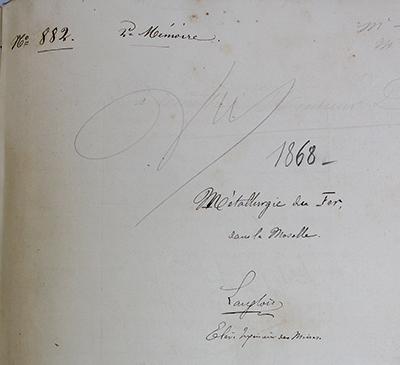 No 882. 2e Mémoire.
Vu
1868 —
Métallurgie du Fer,
dans la Moselle.
Langlois
Elève Ingénieur des Mines.